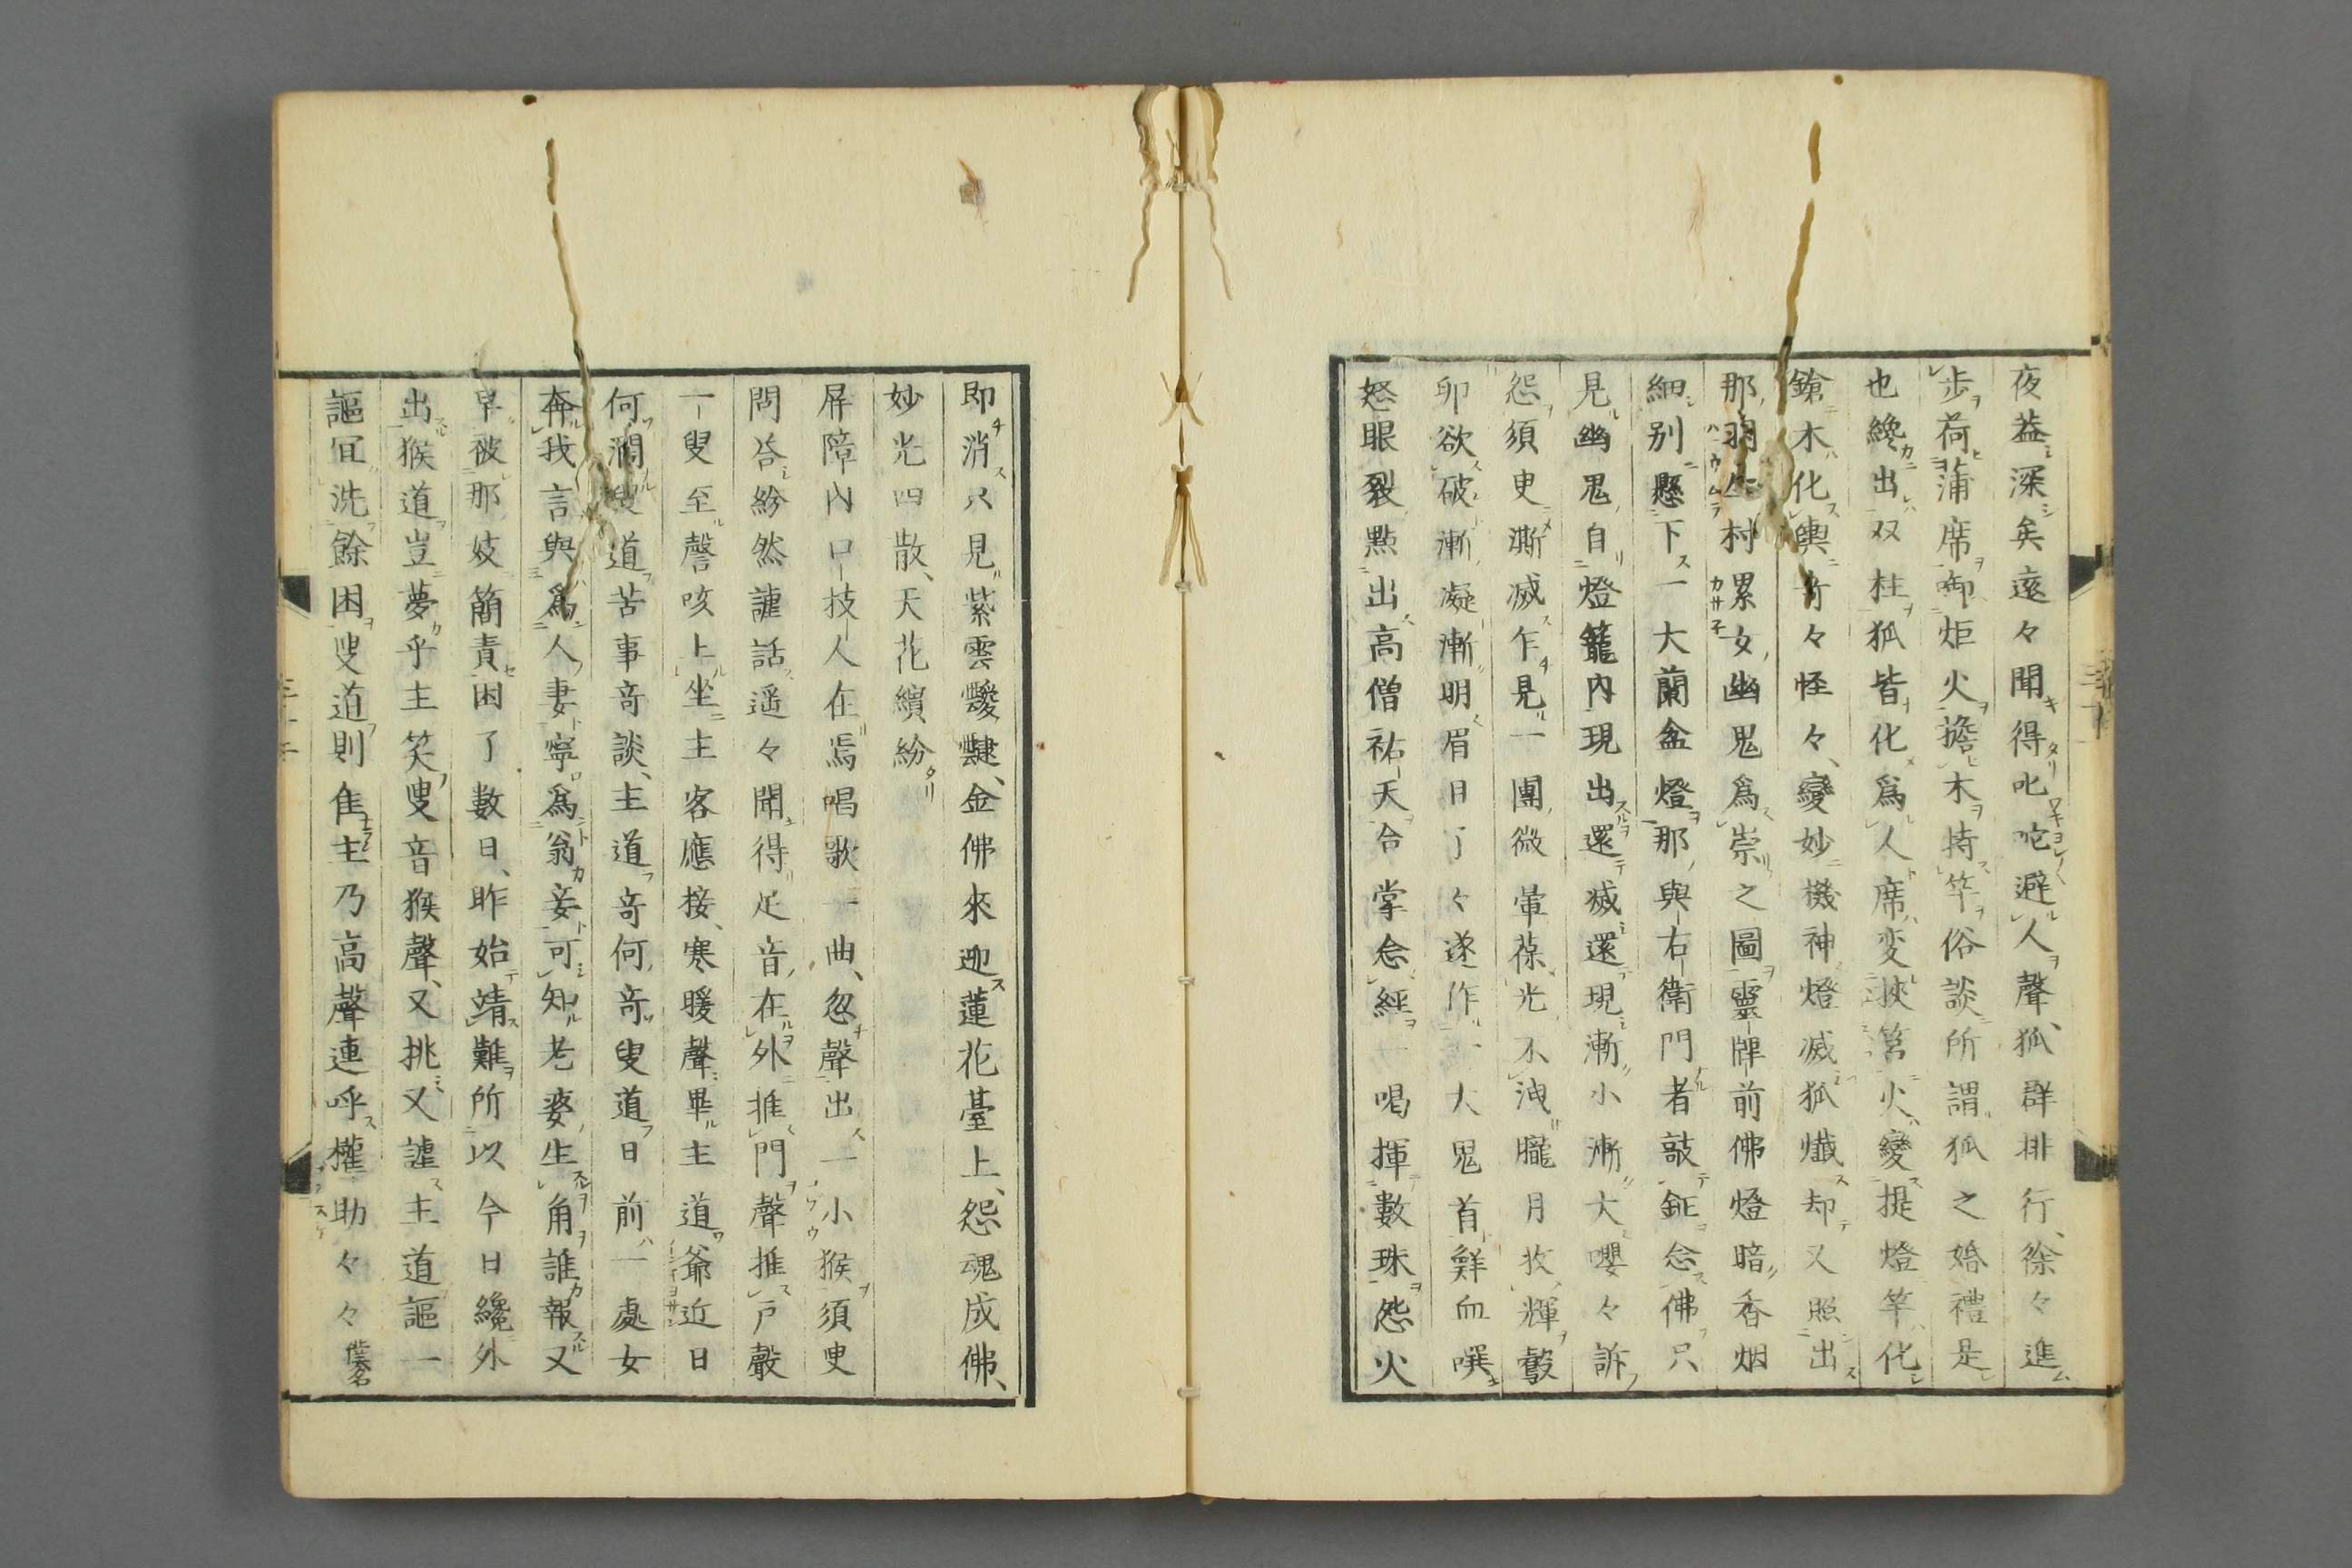 夜益深矣遠々聞得叱咜避人聲、狐群排行、徐々進
歩荷蒲席啣炬火擔木持竿俗談所謂狐之婚禮是
也纔出双柱狐皆化爲人席変挾筥火變提燈竿化
鎗木化輿奇々怪々、變妙機神燈滅狐殲却又照出
那羽生村累女幽鬼爲崇之圖靈牌前佛燈暗香烟
細別懸下一大蘭盆燈那與右衛門者敲鉦念佛只
見幽鬼自燈籠內現出還滅還現漸小漸大嚶々訴
怨須臾澌滅乍見一團微暈葆光不洩朧月攻輝鷇
卯欲破漸凝漸明眉目了々遂作一大鬼首鮮血噀
怒眼裂點出高僧祐天合掌念經一喝揮數珠怨火
即消只見紫雲靉靆、金佛來迎蓮花臺上、怨魂成佛、
妙光四散、天花繽紛
屏障內口技人在焉唱歌一曲、忽聲出一小猴須臾
問答紛然謔話遥々聞得足音、在外推門聲推戸聲
一叟至謦咳上坐主客應接、寒暖聲畢主道爺近日
何濶叟道苦事奇談、主道奇何奇叟道日前一處女
奔我言與爲人妻寧爲翁妾可知老婆生角誰報又
早被那妓簡責困了數日、昨始靖難所以今日纔外
出猴道豈夢乎主笑叟音猴聲、又挑又謔主道謳一
謳宜洗餘困叟道則隹主乃高聲連呼權助々々僕名